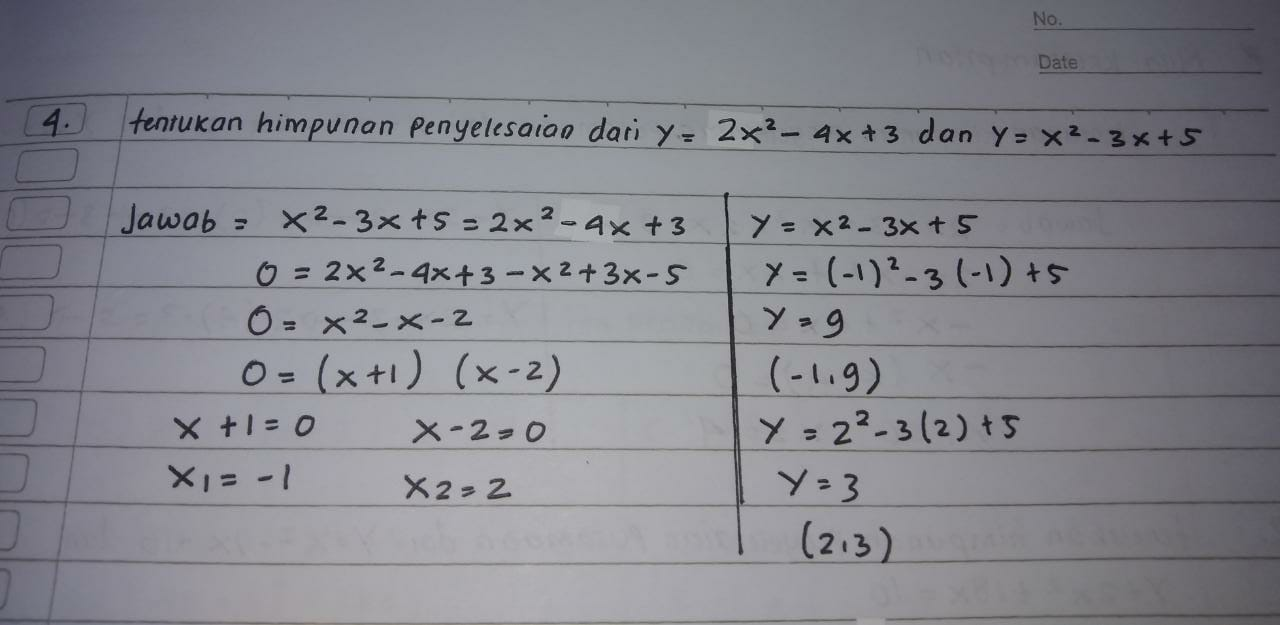 No.
Date
4. tentukan himpunan penyelesaian dari y = 2x² - 4x + 3 dan y = x² - 3x + 5
Jawab = x² - 3x + 5 = 2x² - 4x + 3
0 = 2x² - 4x + 3 - x² + 3x - 5
0 = x² - x - 2
0 = (x + 1) (x - 2)
x + 1 = 0 x - 2 = 0
x₁ = -1 x₂ = 2
y = x² - 3x + 5
y = (-1)² - 3 (-1) + 5
y = 9
(-1, 9)
y = 2² - 3(2) + 5
y = 3
(2, 3)